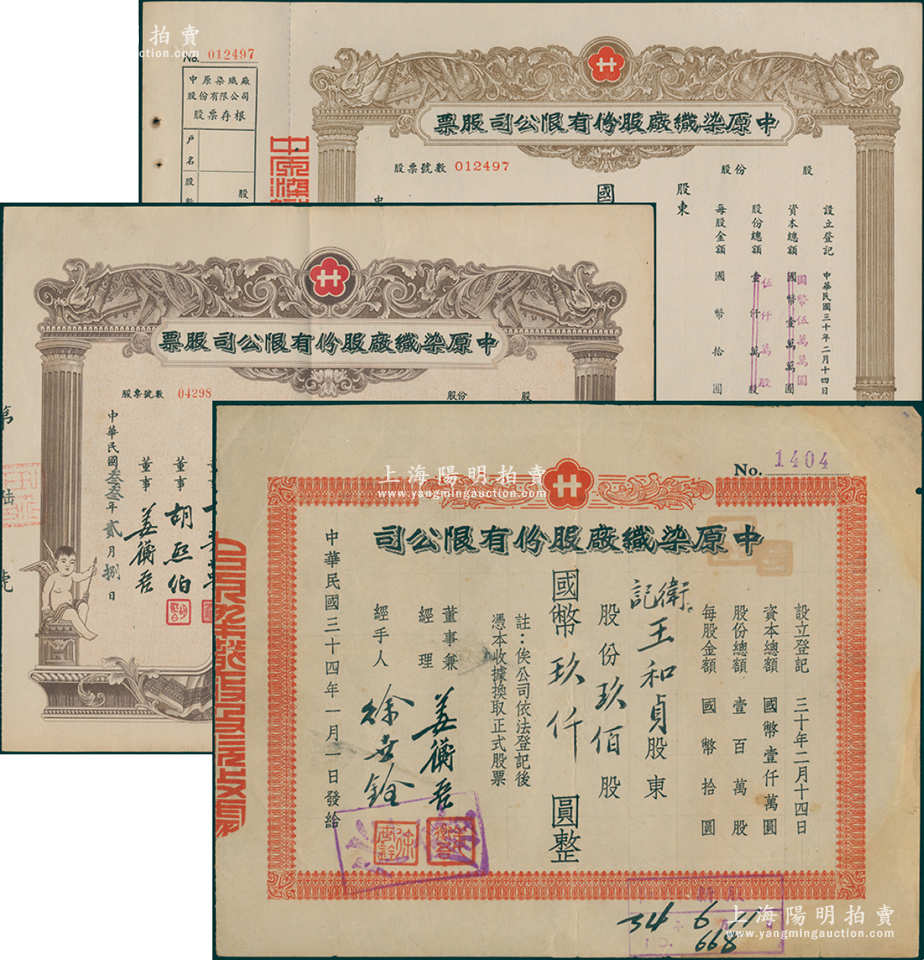 拍賣
auction.com
No. 012497
中原染織廠
股份有限公司
股票存根
戶名
股數
股
中原染織廠股份有限公司股票
股票號數 012497
股份 股
設立登記 中華民國三十年二月十四日
資本總額 國幣壹萬萬圓
國幣伍萬萬圓
股份總額 壹仟萬股
伍仟萬股
每股金額 國幣拾圓
股東
國
中
中原染織廠股份有限公司股票
股票號數 04298
股份 股
董事 胡熙伯
董事 姜衡吾
中華民國叁叁年貳月捌日
第 陆 號
上海陽明拍賣
www.yangmingauction.com
No. 1404
中原染織廠股份有限公司
設立登記 三十年二月十四日
資本總額 國幣壹仟萬圓
股份總額 壹百萬股
每股金額 國幣拾圓
衛記 王和貞股東
股份玖佰股
國幣玖仟圓整
註：俟公司依法登記後
憑本收據換取正式股票
董事兼經理 姜衡吾
經手人 徐世銓
中華民國三十四年一月一日發給
新股
34 6 11
No. 668
上海陽明拍賣
www.yangmingauction.com